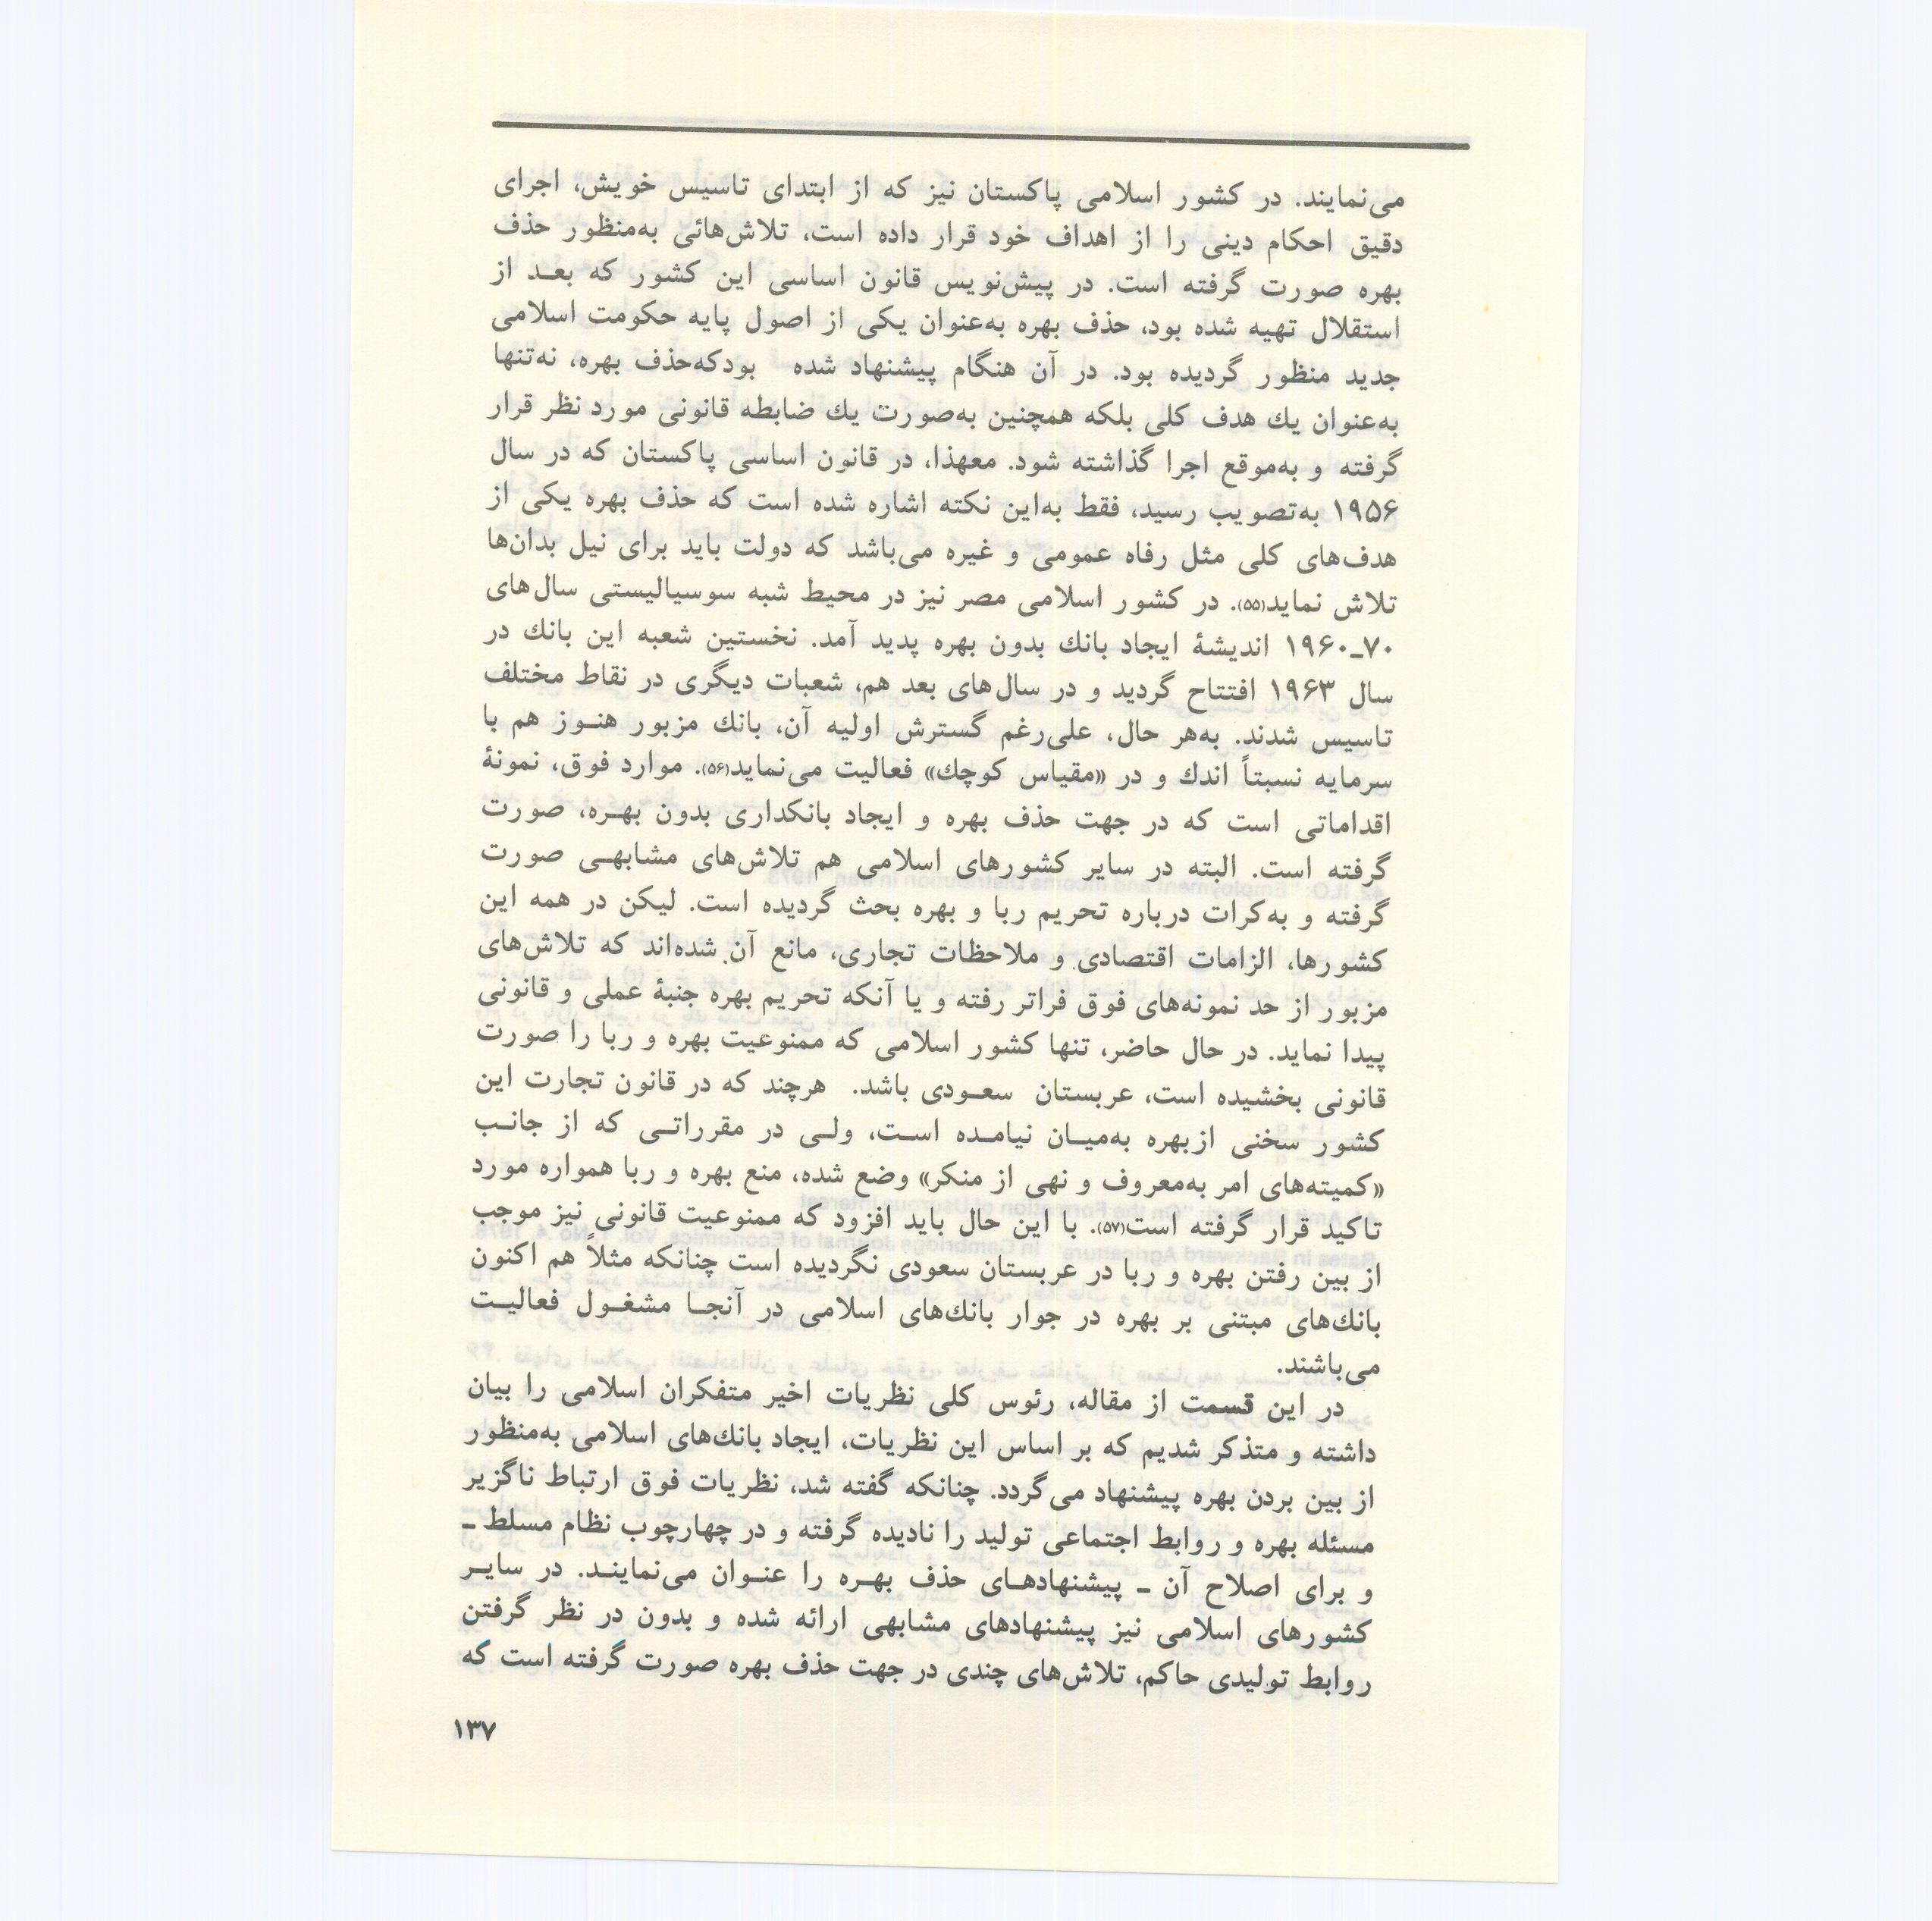 می‌نمایند. در کشور اسلامی پاکستان نیز که از ابتدای تاسیس خویش، اجرای
دقیق احکام دینی را از اهداف خود قرار داده است، تلاش‌هائی به‌منظور حذف
بهره صورت گرفته است. در پیش‌نویس قانون اساسی این کشور که بعـد از
استقلال تهیه شده بود، حذف بهره به‌عنوان یکی از اصول پایه حکومت اسلامی
جدید منظور گردیده بود. در آن هنگام پیشنهاد شده بودکه‌حذف بهره، نه‌تنها
به‌عنوان یك هدف کلی بلکه همچنین به‌صورت یك ضابطه قانونی مورد نظر قرار
گرفته و به‌موقع اجرا گذاشته شود. معهذا، در قانون اساسی پاکستان که در سال
۱۹۵۶ به‌تصویب رسید، فقط به‌این نکته اشاره شده است که حذف بهره یکی از
هدف‌های کلی مثل رفاه عمومی و غیره می‌باشد که دولت باید برای نیل بدان‌ها
تلاش نماید(۵۵). در کشور اسلامی مصر نیز در محیط شبه سوسیالیستی سال‌های
۱۹۶۰ـ۷۰ اندیشهٔ ایجاد بانك بدون بهره پدید آمد. نخستین شعبه این بانك در
سال ۱۹۶۳ افتتاح گردید و در سال‌های بعد هم، شعبات دیگری در نقاط مختلف
تاسیس شدند. به‌هر حال، علی‌رغم گسترش اولیه آن، بانك مزبور هنـوز هم با
سرمایه نسبتاً اندك و در «مقیاس کوچك» فعالیت می‌نماید(۵۶). موارد فوق، نمونهٔ
اقداماتی است که در جهت حذف بهره و ایجاد بانکداری بدون بهـره، صورت
گرفته است. البته در سایر کشورهای اسلامی هم تلاش‌های مشابهـی صورت
گرفته و به‌کرات درباره تحریم ربا و بهره بحث گردیده است. لیکن در همه این
کشورها، الزامات اقتصادی و ملاحظات تجاری، مانع آن شده‌اند که تلاش‌های
مزبور از حد نمونه‌های فوق فراتر رفته و یا آنکه تحریم بهره جنبهٔ عملی و قانونی
پیدا نماید. در حال حاضر، تنها کشور اسلامی که ممنوعیت بهره و ربا را صورت
قانونی بخشیده است، عربستان سعـودی باشد. هرچند که در قانون تجارت این
کشور سخنی ازبهره به‌میـان نیامـده اسـت، ولـی در مقرراتـی که از جانـب
«کمیته‌های امر به‌معروف و نهی از منکر» وضع شده، منع بهره و ربا همواره مورد
تاکید قرار گرفته است(۵۷). با این حال باید افزود که ممنوعیت قانونی نیز موجب
از بین رفتن بهره و ربا در عربستان سعودی نگردیده است چنانکه مثلاً هم اکنون
بانك‌های مبتنی بر بهره در جوار بانك‌های اسلامی در آنجـا مشغـول فعالیـت
می‌باشند.
در این قسمت از مقاله، رئوس کلی نظریات اخیر متفکران اسلامی را بیان
داشته و متذکر شدیم که بر اساس این نظریات، ایجاد بانك‌های اسلامی به‌منظور
از بین بردن بهره پیشنهاد می‌گردد. چنانکه گفته شد، نظریات فوق ارتباط ناگزیر
مسئله بهره و روابط اجتماعی تولید را نادیده گرفته و در چهارچوب نظام مسلط ـ
و برای اصلاح آن ـ پیشنهادهـای حذف بهـره را عنـوان می‌نماینـد. در سایـر
کشورهای اسلامی نیز پیشنهادهای مشابهی ارائه شده و بدون در نظر گرفتن
روابط تولیدی حاکم، تلاش‌های چندی در جهت حذف بهره صورت گرفته است که
۱۳۷